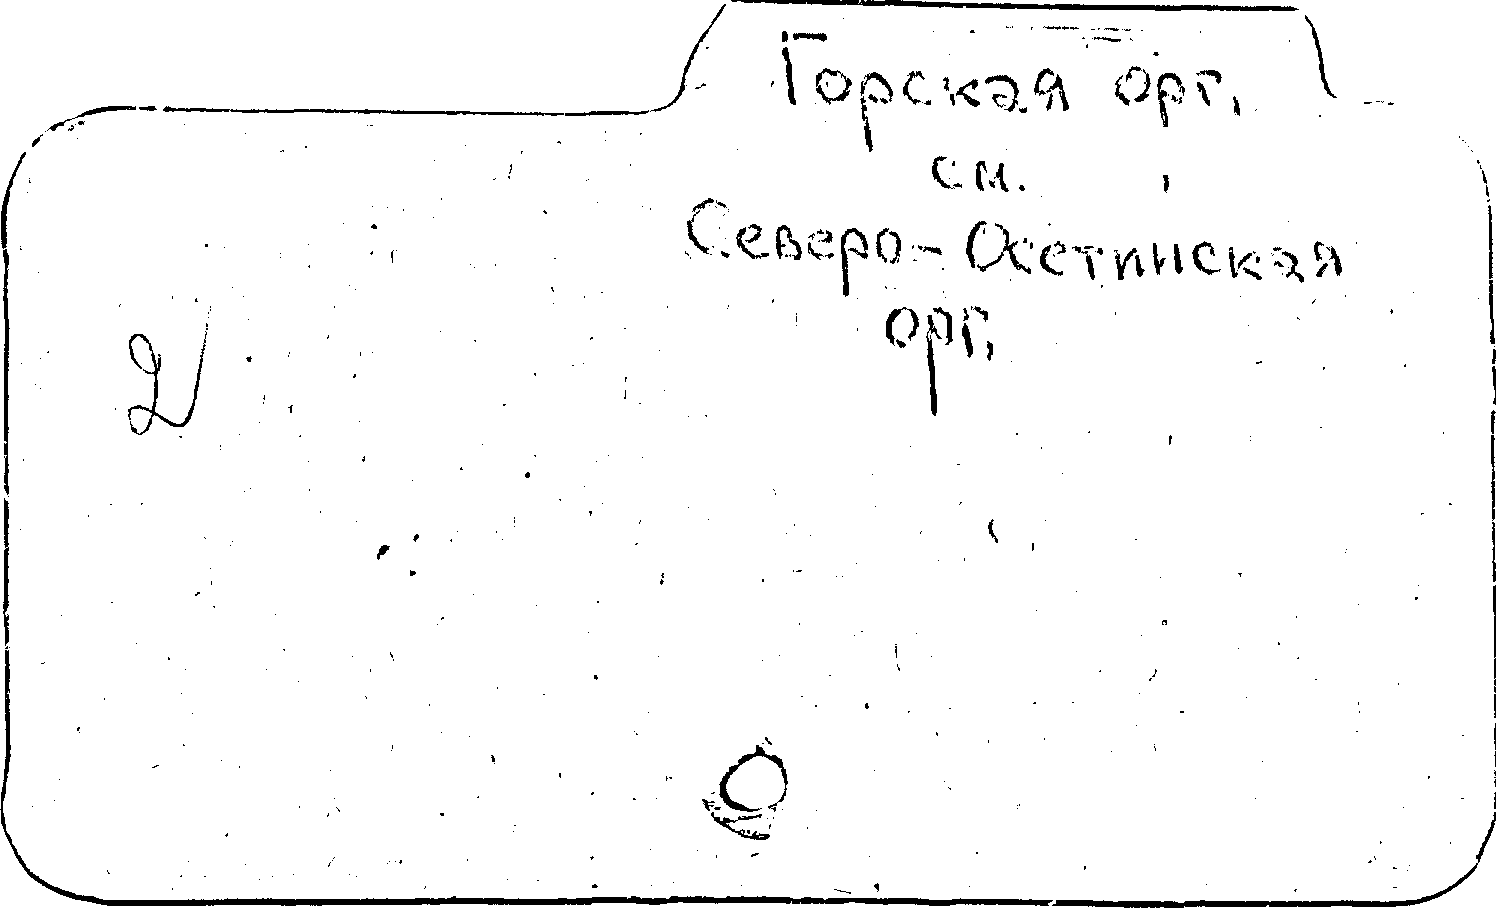 Горская орг.
см.
Северо-Осетинская
орг.